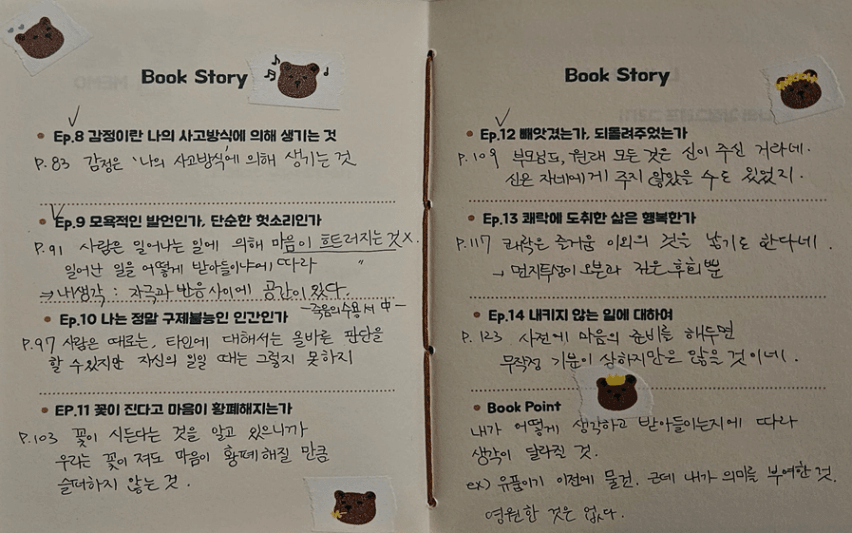 Book Story
Ep.8 감정이란 나의 사고방식에 의해 생기는 것
P.83 감정은 '나의 사고방식'에 의해 생기는 것
Ep.9 모욕적인 발언인가, 단순한 헛소리인가
P.91 사람은 일어나는 일에 의해 마음이 흐트러지는 것X.
일어난 일을 어떻게 받아들이냐에 따라 〃
⇒ 내생각 : 자극과 반응사이에 공간이 있다.
-죽음의수용서 中-
Ep.10 나는 정말 구제불능인 인간인가
P.97 사람은 때로는, 타인에 대해서는 올바른 판단을
할 수 있지만 자신의 일일 때는 그렇지 못하지
EP.11 꽃이 진다고 마음이 황폐해지는가
P.103 꽃이 시든다는 것을 알고 있으니까
우리는 꽃이 져도 마음이 황폐해질 만큼
슬퍼하지 않는 것.
Book Story
Ep.12 빼앗겼는가, 되돌려주었는가
P.109 부모님도, 원래 모든 것은 신이 주신 거라네.
신은 자네에게 주지 않았을 수도 있었지.
Ep.13 쾌락에 도취한 삶은 행복한가
P.117 쾌락은 즐거움 이외의 것을 낳기도 한다네.
→ 먼지투성이 오븐과 같은 후회뿐
Ep.14 내키지 않는 일에 대하여
P.123 사전에 마음의 준비를 해두면
무작정 기분이 상하지만은 않을 것이네.
Book Point
내가 어떻게 생각하고 받아들이는지에 따라
생각이 달라질 것.
ex) 유품이기 이전에 물건. 근데 내가 의미를 부여한 것.
영원한 것은 없다.